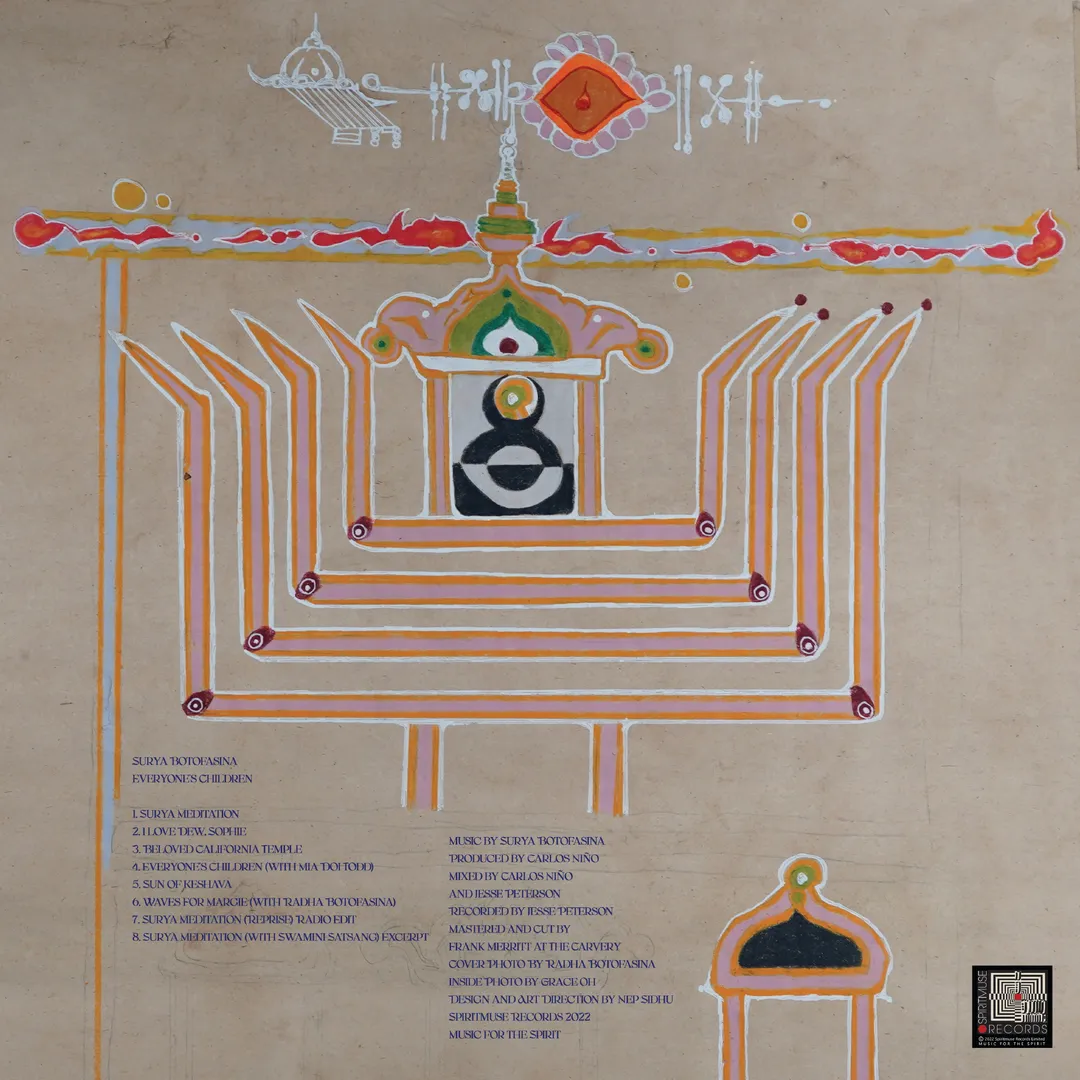 SURYA BOTOFASINA
EVERYONE'S CHILDREN
1. SURYA MEDITATION
2. I LOVE DEW, SOPHIE
3. BELOVED CALIFORNIA TEMPLE
4. EVERYONE'S CHILDREN (WITH MIA DOI TODD)
5. SUN OF KESHAVA
6. WAVES FOR MARGIE (WITH RADHA BOTOFASINA)
7. SURYA MEDITATION (REPRISE) RADIO EDIT
8. SURYA MEDITATION (WITH SWAMINI SATSANG) EXCERPT
MUSIC BY SURYA BOTOFASINA
PRODUCED BY CARLOS NIÑO
MIXED BY CARLOS NIÑO
AND JESSE PETERSON
RECORDED BY JESSE PETERSON
MASTERED AND CUT BY
FRANK MERRITT AT THE CARVERY
COVER PHOTO BY RADHA BOTOFASINA
INSIDE PHOTO BY GRACE OH
DESIGN AND ART DIRECTION BY NEP SIDHU
SPIRITMUSE RECORDS 2022
MUSIC FOR THE SPIRIT
SPIRITMUSE
RECORDS
© 2022 Spiritmuse Records Limited
MUSIC FOR THE SPIRIT